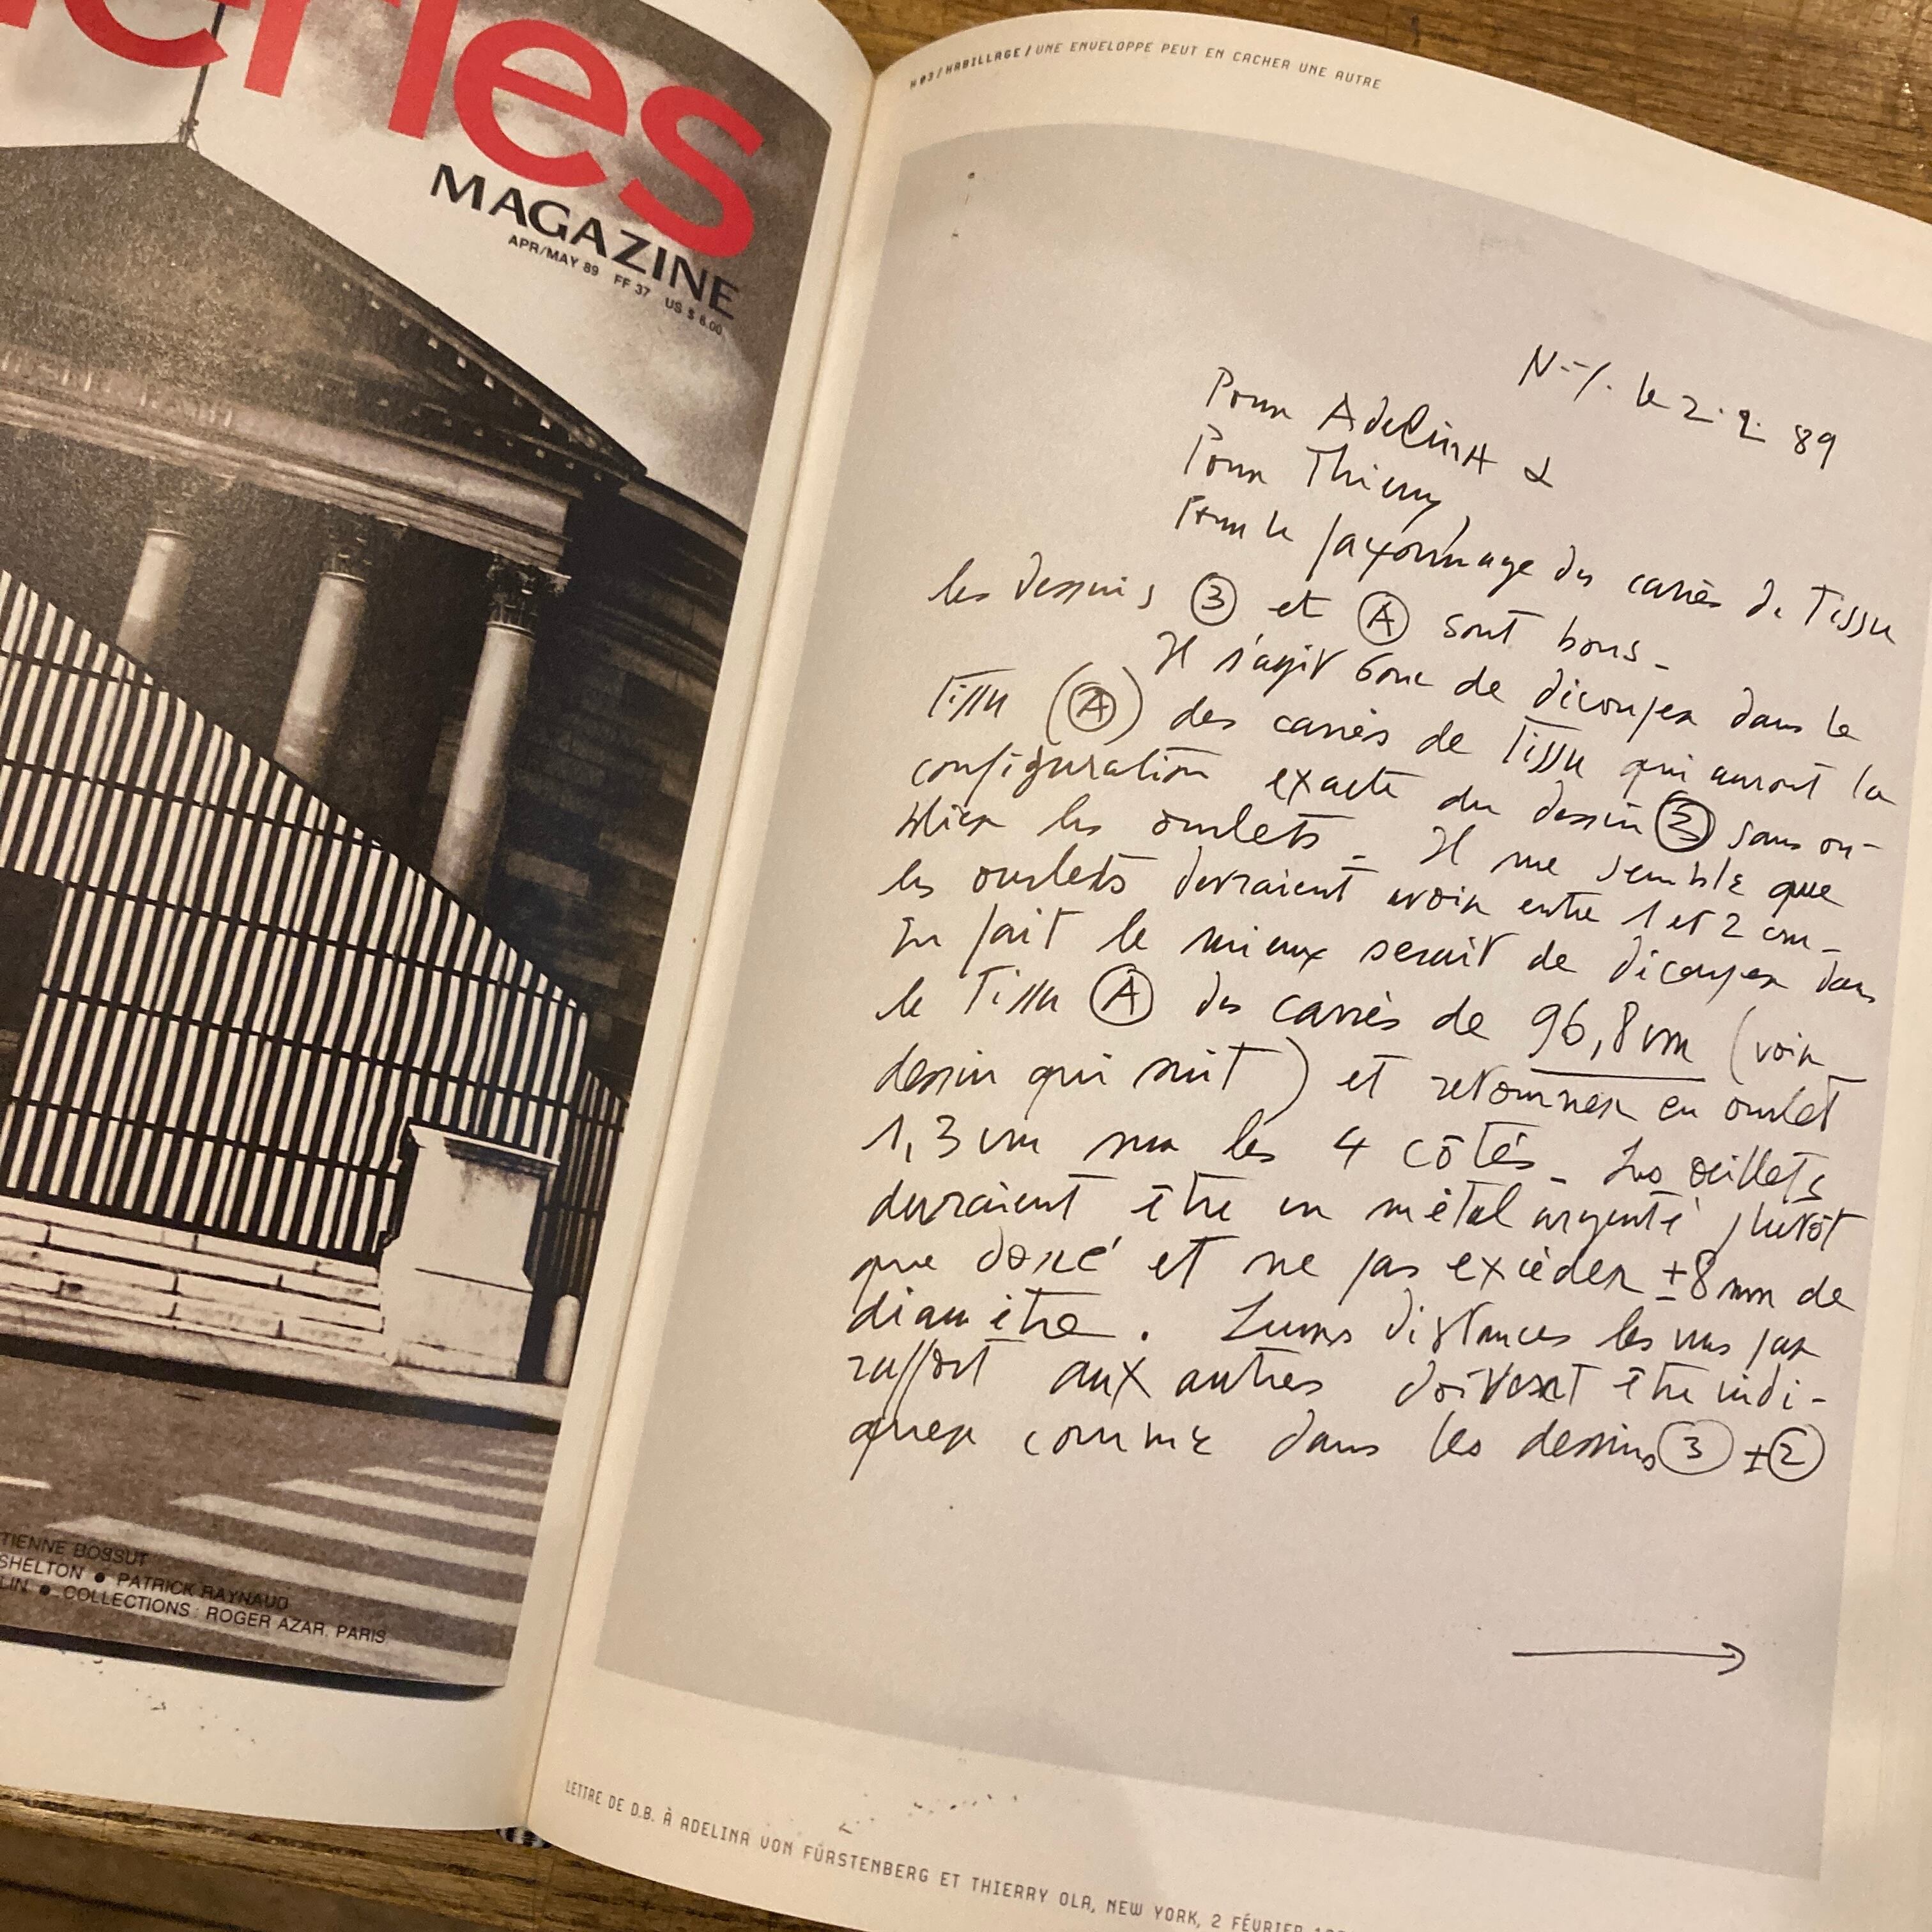 eries
MAGAZINE
APR/MAY 89 FF 37 US $ 6.00
TIENNE BOSSUT
SHELTON ● PATRICK RAYNAUD
LIN ● COLLECTIONS : ROGER AZAR, PARIS
H 03/HABILLAGE/UNE ENVELOPPE PEUT EN CACHER UNE AUTRE
N-Y. le 2.2. 89
Pour Adelina &
Pour Thierry
Pour le façonnage des carrés de Tissu
les dessins 3 et A sont bons-
Il s'agit donc de découper dans le
Tissu (A) des carrés de Tissu qui auront la
configuration exacte du dessin 2 sans ou-
blier les ourlets - Il me semble que
les ourlets devraient avoir entre 1 et 2 cm-
En fait le mieux serait de découper dans
le Tissu A des carrés de 96,8 cm (voir
dessin qui suit) et retourner en ourlet
1,3 cm sur les 4 côtés - Les œillets
devraient être en métal argenté plutôt
que doré et ne pas excéder ±8 mm de
diamètre. Leurs distances les uns par
rapport aux autres doivent être indi-
quer comme dans les dessins 3 + 2
→
LETTRE DE D.B. À ADELINA VON FÜRSTENBERG ET THIERRY OLA, NEW YORK, 2 FÉVRIER